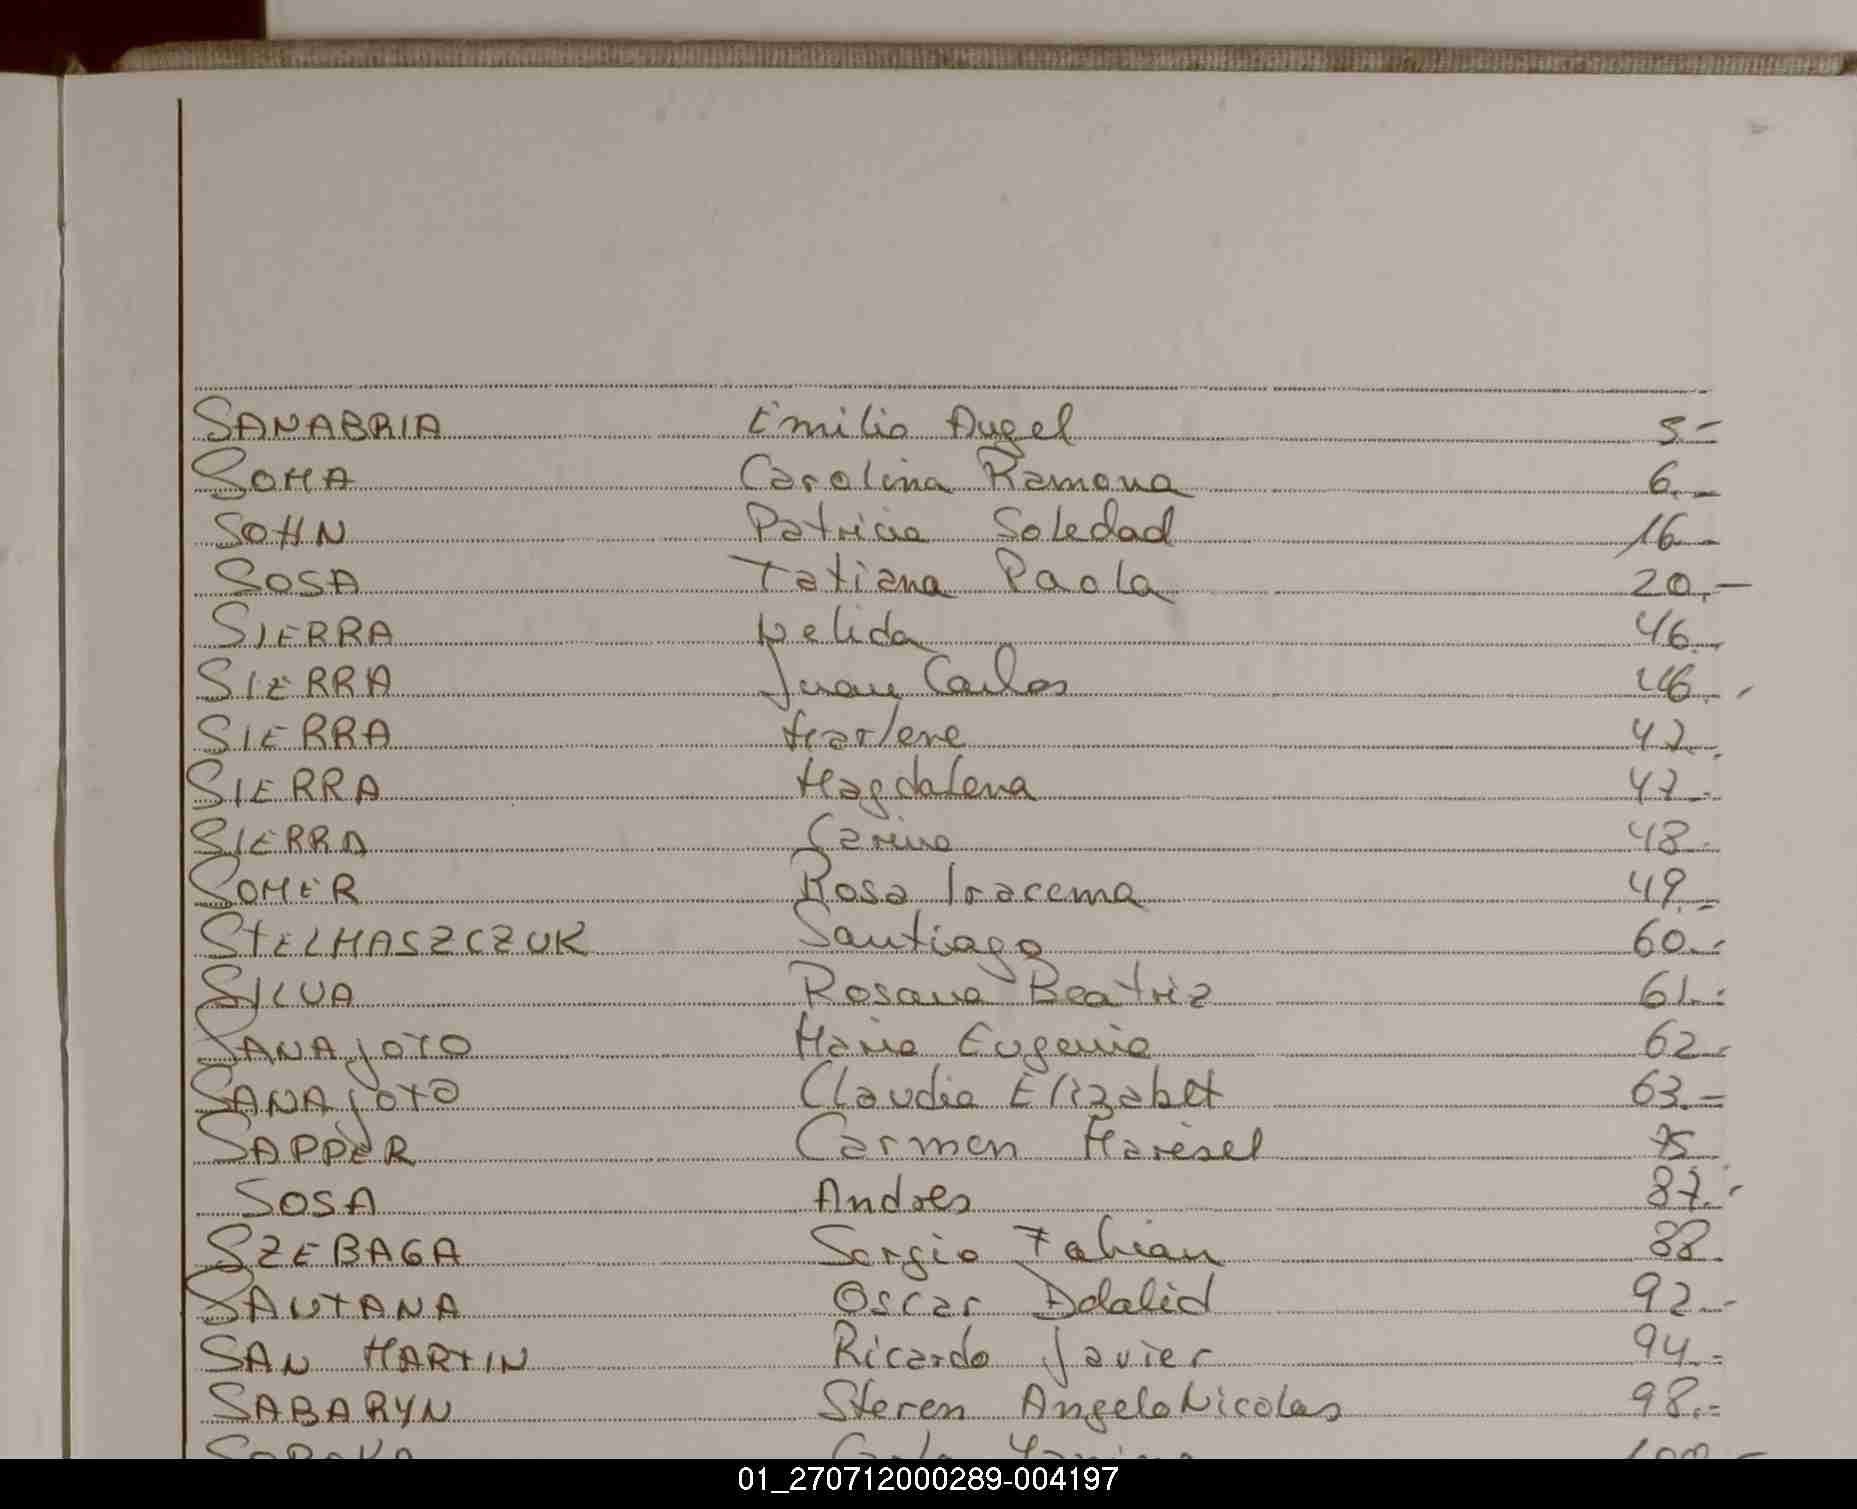 SANABRIA Emilio Angel 5.-
SOMA Carolina Ramona 6.-
SOHN Patricia Soledad 16.-
SOSA Tatiana Paola 20.-
SIERRA Nelida 46.-
SIERRA Juan Carlos 46.-
SIERRA Marlene 47.-
SIERRA Magdalena 47.-
SIERRA Carina 48.-
SOMER Rosa Iracema 49.-
STELMASZCZUK Santiago 60.-
SILVA Rosana Beatriz 61.-
SANAJOTO Maria Eugenia 62.-
SANAJOTO Claudia Elizabet 63.-
SAPPER Carmen Maresel 75
SOSA Andres 87.-
SZEBAGA Sergio Fabian 88.
SANTANA Oscar Ddalid 92.-
SAN MARTIN Ricardo Javier 94.-
SABARYN Steren Angelo Nicolas 98.-
01_270712000289-004197